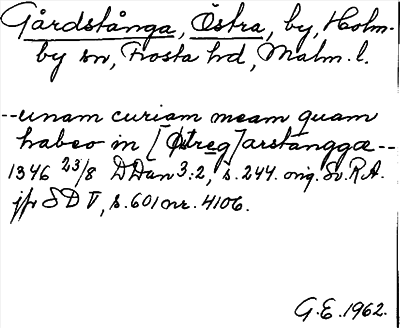 Gårdstånga, Östra, by, Holm-
by sn, Frosta hd, Malm. l.
--unam curiam meam quam
habeo in [Østreg]arstanggæ--
1346 23/8 DDan 3:2, s. 244. orig. Sv. R.A.
jfr SD V, s. 601 nr. 4106.
G.E. 1962.